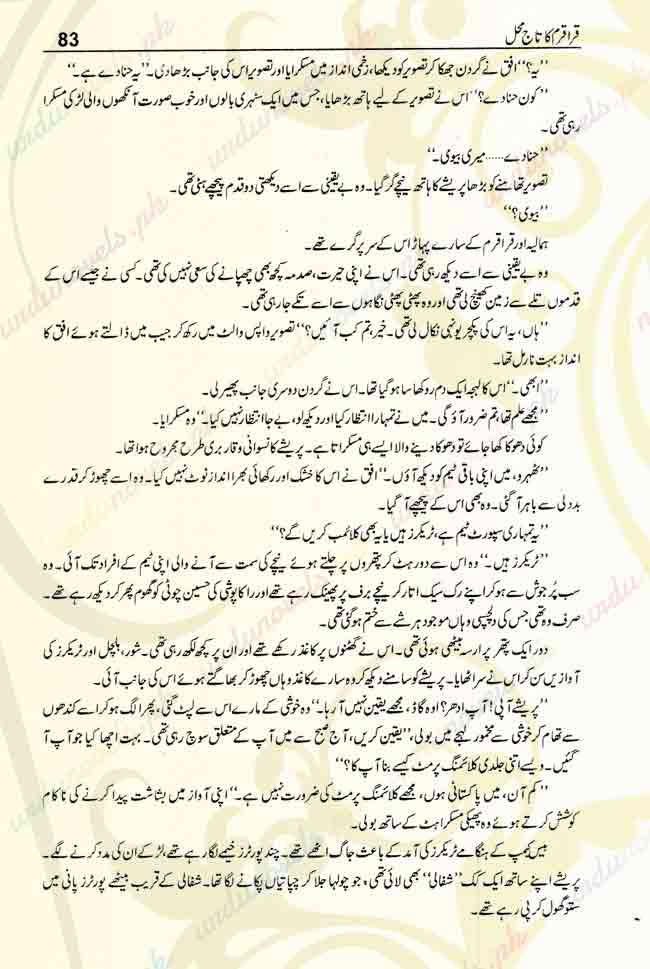 قراقرم کا تاج محل
83
’’یہ؟‘‘ افق نے گردن جھکا کر تصویر کو دیکھا، زخمی انداز میں مسکرایا اور تصویر اس کی جانب بڑھا دی۔ ’’یہ حنادے ہے۔‘‘
’’کون حنادے؟‘‘ اس نے تصویر کے لیے ہاتھ بڑھایا، جس میں ایک سنہری بالوں اور خوب صورت آنکھوں والی لڑکی مسکرا
رہی تھی۔
’’حنادے...... میری بیوی۔‘‘
تصویر تھامنے کو بڑھا پریشے کا ہاتھ نیچے گر گیا۔ وہ بے یقینی سے اسے دیکھتی دو قدم پیچھے ہٹی تھی۔
’’بیوی؟‘‘
ہمالیہ اور قراقرم کے سارے پہاڑ اس کے سر پر گرے تھے۔
وہ بے یقینی سے اسے دیکھ رہی تھی۔ اس نے اپنی حیرت، صدمہ کچھ بھی چھپانے کی سعی نہیں کی تھی۔ کسی نے جیسے اس کے
قدموں تلے سے زمین کھینچ لی تھی اور وہ پھٹی پھٹی نگاہوں سے اسے تکے جا رہی تھی۔
’’ہاں، یہ اس کی پکچر یونہی نکال لی تھی۔ خیر تم کب آئیں؟‘‘ تصویر واپس والٹ میں رکھ کر جیب میں ڈالتے ہوئے افق کا
انداز بہت نارمل تھا۔
’’ابھی۔‘‘ اس کا لہجہ ایک دم روکھا سا ہو گیا تھا۔ اس نے گردن دوسری جانب پھیر لی۔
’’مجھے علم تھا، تم ضرور آؤ گی۔ میں نے تمہارا انتظار کیا اور دیکھ لو، بے جا انتظار نہیں کیا۔‘‘ وہ مسکرایا۔
کوئی دھوکا کھا جائے تو دھوکا دینے والا ایسے ہی مسکراتا ہے۔ پریشے کا نسوانی وقار بری طرح مجروح ہوا تھا۔
’’ٹھہرو، میں اپنی باقی ٹیم کو دیکھ آؤں۔‘‘ افق نے اس کا خشک اور رکھائی بھرا انداز نوٹ نہیں کیا۔ وہ اسے چھوڑ کر قدرے
بددلی سے باہر آ گئی۔ وہ بھی اس کے پیچھے آ گیا۔
’’یہ تمہاری سپورٹ ٹیم ہے، ٹریکرز ہیں یا یہ بھی کلائمب کریں گے؟‘‘
’’ٹریکرز ہیں۔‘‘ وہ اس سے دور ہٹ کر پتھروں پر چلتے ہوئے نیچے کی سمت سے آنے والی اپنی ٹیم کے افراد تک آئی۔ وہ
سب پُرجوش سے ہو کر اپنے رک سیک اتار کر نیچے برف پر پھینک رہے تھے اور راکاپوشی کی حسین چوٹی کو گھوم پھر کر دیکھ رہے تھے۔
صرف وہ تھی جس کی دلچسپی وہاں موجود ہر شے سے ختم ہو گئی تھی۔
دور ایک پتھر پر ارسہ بیٹھی ہوئی تھی۔ اس نے گھٹنوں پر کاغذ رکھے تھے اور ان پر کچھ لکھ رہی تھی۔ شور، ہلچل اور ٹریکرز کی
آوازیں سن کر اس نے سر اٹھایا۔ پریشے کو سامنے دیکھ کر وہ سارے کاغذ وہاں چھوڑ کر بھاگتے ہوئے اس کی جانب آئی۔
’’پریشے آپی! آپ ادھر؟ اوہ گاڈ، مجھے یقین نہیں آ رہا۔‘‘ وہ خوشی کے مارے اس سے لپٹ گئی، پھر الگ ہو کر اسے کندھوں
سے تھام کر خوشی سے مخمور لہجے میں بولی، ’’یقین کریں، آج صبح سے میں آپ کے متعلق سوچ رہی تھی۔ بہت اچھا کیا جو آپ آ
گئیں۔ ویسے اتنی جلدی کلائمنگ پرمٹ کیسے بنا آپ کا؟‘‘
’’کم آن، میں پاکستانی ہوں، مجھے کلائمنگ پرمٹ کی ضرورت نہیں ہے۔‘‘ اپنی آواز میں بشاشت پیدا کرنے کی ناکام
کوشش کرتے ہوئے وہ پھیکی مسکراہٹ کے ساتھ بولی۔
بیس کیمپ کے ہنگامے ٹریکرز کی آمد کے باعث جاگ اٹھے تھے۔ چند پورٹرز خیمے لگا رہے تھے، لڑکے ان کی مدد کرنے لگے۔
پریشے اپنے ساتھ ایک کک ’’شفالی‘‘ بھی لائی تھی، جو چولہا جلا کر چپاتیاں پکانے لگا تھا۔ شفالی کے قریب بیٹھے پورٹرز پانی میں
ستو گھول کر پی رہے تھے۔